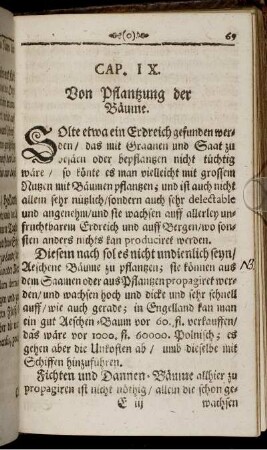 (0) 69
CAP. IX.
Von Pflantzung der
Bäume.
SOlte etwa ein Erdreich gefunden wer-
den/ das mit Graanen und Saat zu
besäen oder bepflantzen nicht tüchtig
wäre/ so könte es man vielleicht mit grossem
Nutzen mit Bäumen pflantzen; und ist auch nicht
allein sehr nützlich/ sondern auch sehr delectable
und angenehm/ und sie wachsen auff allerley un-
fruchtbarem Erdreich und auff Bergen/ wo son-
sten anders nichts kan produciret werden.
Diesem nach sol es nicht undienlich seyn/
Aeschene Bäume zu pflantzen; sie können aus
dem Saamen oder aus Pflantzen propagiret wer-
den/ und wachsen hoch und dicke und sehr schnell
auff/ wie auch gerade; in Engelland kan man
ein gut Aeschen-Baum vor 60. fl. verkauffen/
das wäre vor 1000. fl. 60000. Polnisch; es
gehen aber die Unkosten ab/ umb dieselbe mit
Schiffen hinzuführen.
Fichten und Dannen-Bäume allhier zu
propagiren ist nicht nöthig/ allein die schon ge-
E iij wachsen
NB